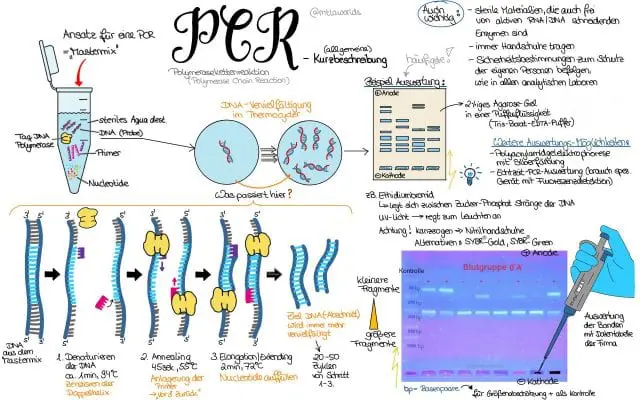 Ansatz für eine PCR
"Mastermix"
steriles Aqua dest.
DNA (Probe)
Taq DNA
Polymerase
Primer
Nucleotide
@mtlaworlds
PCR
Polymerasekettenreaktion
(Polymerase Chain Reaction)
(allgemeine)
- Kurzbeschreibung
DNA-Vervielfältigung
im Thermocycler
Was passiert hier?
häufigste!
Beispiel Auswertung:
⊕ Anode
⊖ Kathode
Auch
wichtig:
- sterile Materialien, die auch frei
von aktiven RNA/DNA schneidenden
Enzymen sind
- immer Handschuhe tragen
- Sicherheitsbestimmungen zum Schutz
der eigenen Personen befolgen,
wie in allen analytischen Laboren
2%iges Agarose-Gel
in einer Pufferflüssigkeit
(Tris-Borat-EDTA-Puffer)
Weitere Auswertungs-Möglichkeiten:
- Polyacrylamidgelelektrophorese
mit Silberfärbung
- Echtzeit-PCR-Auswertung (brauch spez.
Gerät mit Fluoreszenzdetektion)
zB. Ethidiumbromid
legt sich zwischen Zucker-Phosphat Stränge der DNA
UV-Licht → regt zum Leuchten an
Achtung! kanzerogen → Nitrilhandschuhe
Alternativen: SYBR® Gold, SYBR® Green
3' 5' 3' 5' 3' 5' 3' 5'
DNA
aus dem
Mastermix
1. Denaturieren
der DNA
ca. 1min, 94°C
Zerreisen der
Doppelhelix
2. Annealing
45sek, 55°C
Anlagerung der
Primer
3. Elongation/Extending
2min, 72°C
Nucleotide auffüllen
Ziel DNA(-Abschnitt)
wird immer mehr
vervielfältigt
20-50
Zyklen
von Schritt
1-3.
kleinere
Fragmente
größere
Fragmente
Kontrolle
Blutgruppe 0 A
⊕ Anode
⊖ Kathode
bp = Basenpaare
für Größenbeobachtung + als Kontrolle
Auswertung
der Banden
mit Datentabelle
der Firma